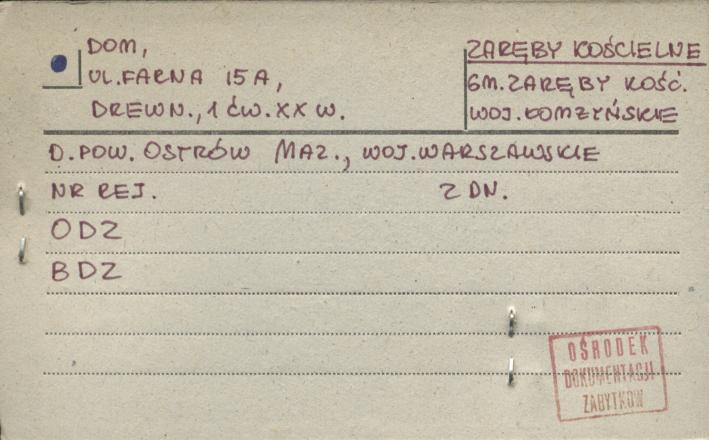 DOM,
UL. FARNA 15A,
DREWN., 1 ĆW. XX W.
ZARĘBY KOŚCIELNE
GM. ZARĘBY KOŚC.
WOJ. ŁOMŻYŃSKIE
D. POW. OSTRÓW MAZ., WOJ. WARSZAWSKIE
NR REJ. Z DN.
ODZ
BDZ
OŚRODEK
DOKUMENTACJI
ZABYTKÓW